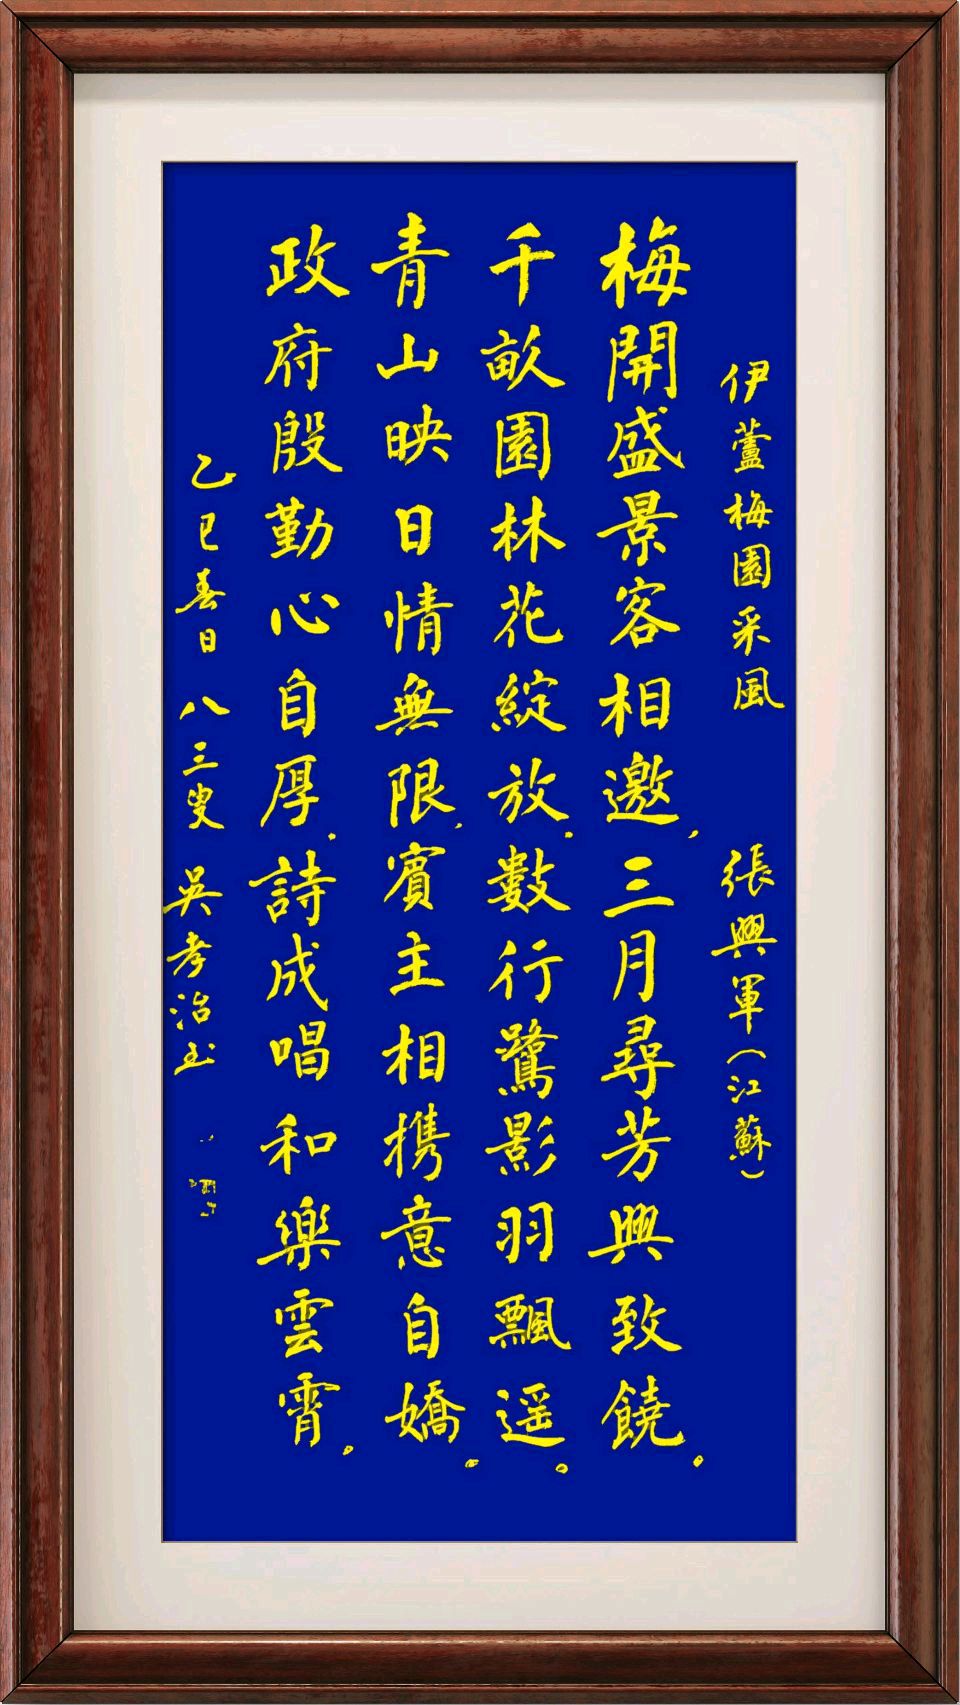 伊蘆梅園采風 張興軍（江蘇）
梅開盛景客相邀，三月尋芳興致饒。
千畝園林花綻放，數行鷺影羽飄遥。
青山映日情無限，賓主相携意自嬌。
政府殷勤心自厚，詩成唱和樂雲霄。
乙巳春日 八三叟 吳孝治书